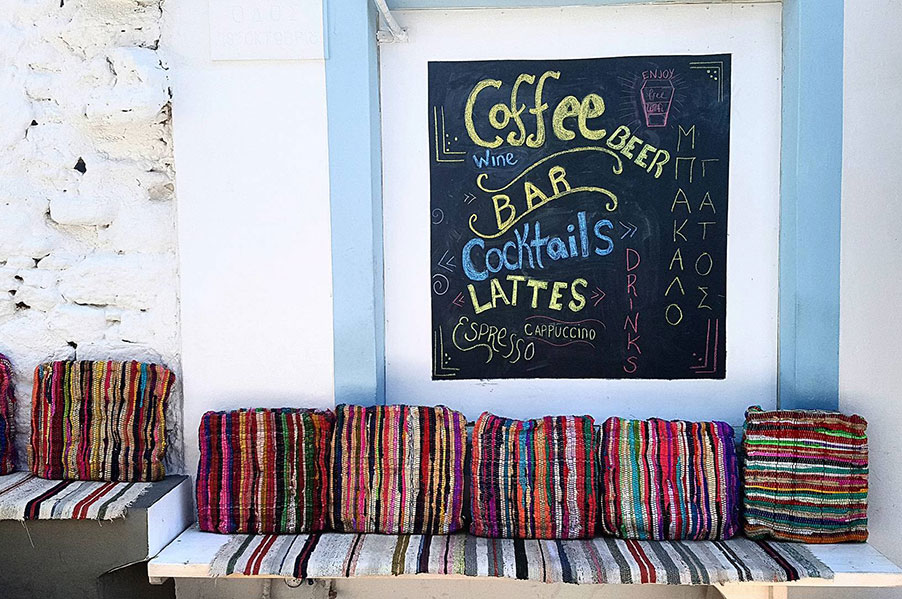 ΟΔΟΣ
ENJOY
Coffee
BEER
Wine
BAR
Cocktails
LATTES
ESPRESSO
CAPPUCCINO
DRINKS
ΜΠΑΚΑΛΟ
ΓΑΤΟΣ